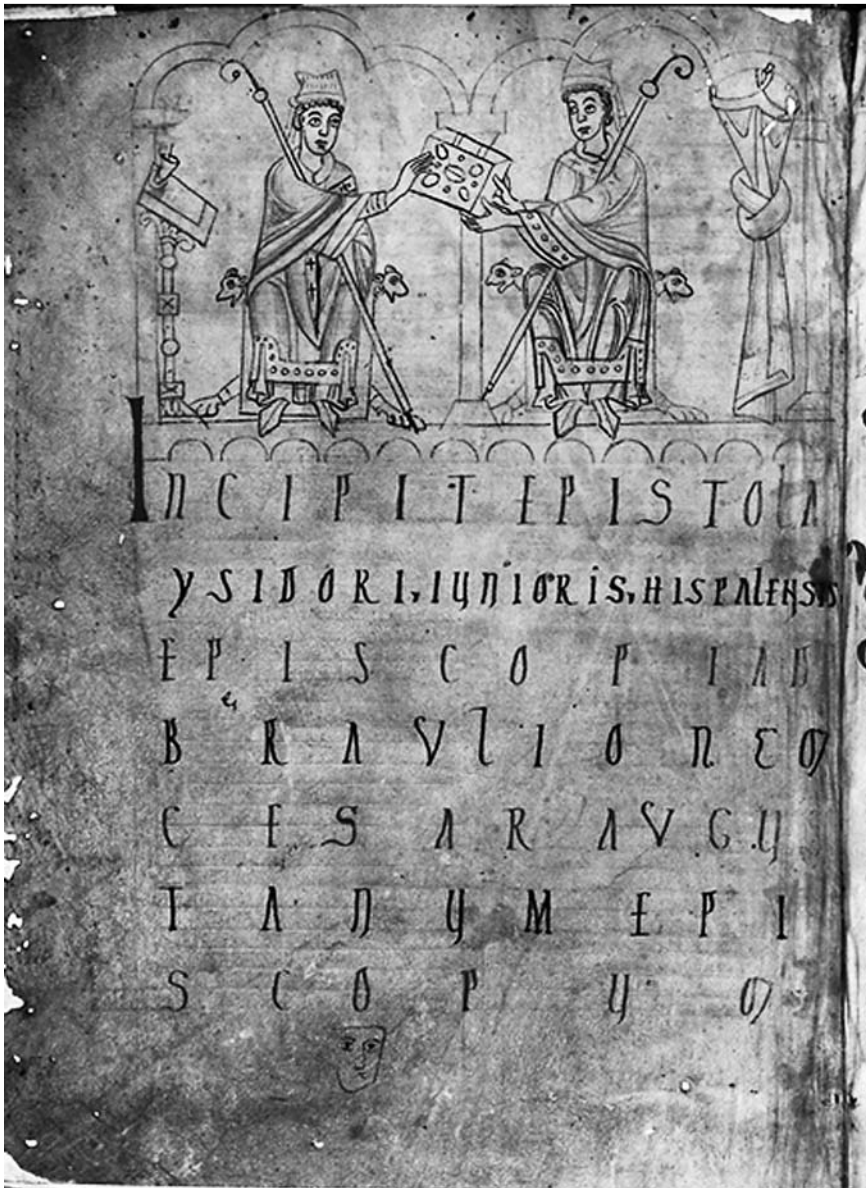 INCIPIT EPISTOlA
YSIDORI. IUNIORIS. HISPAlENSIS
EPISCOPI AD
BRAVlIONEM
CESARAVGU
TANUM EPI
SCOPUM